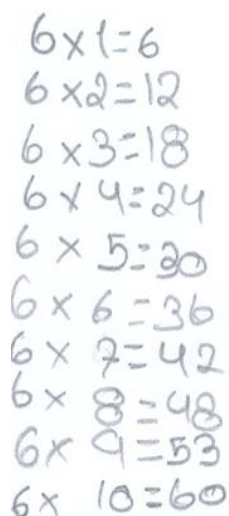 6 x 1 = 6
6 x 2 = 12
6 x 3 = 18
6 x 4 = 24
6 x 5 = 30
6 x 6 = 36
6 x 7 = 42
6 x 8 = 48
6 x 9 = 53
6 x 10 = 60